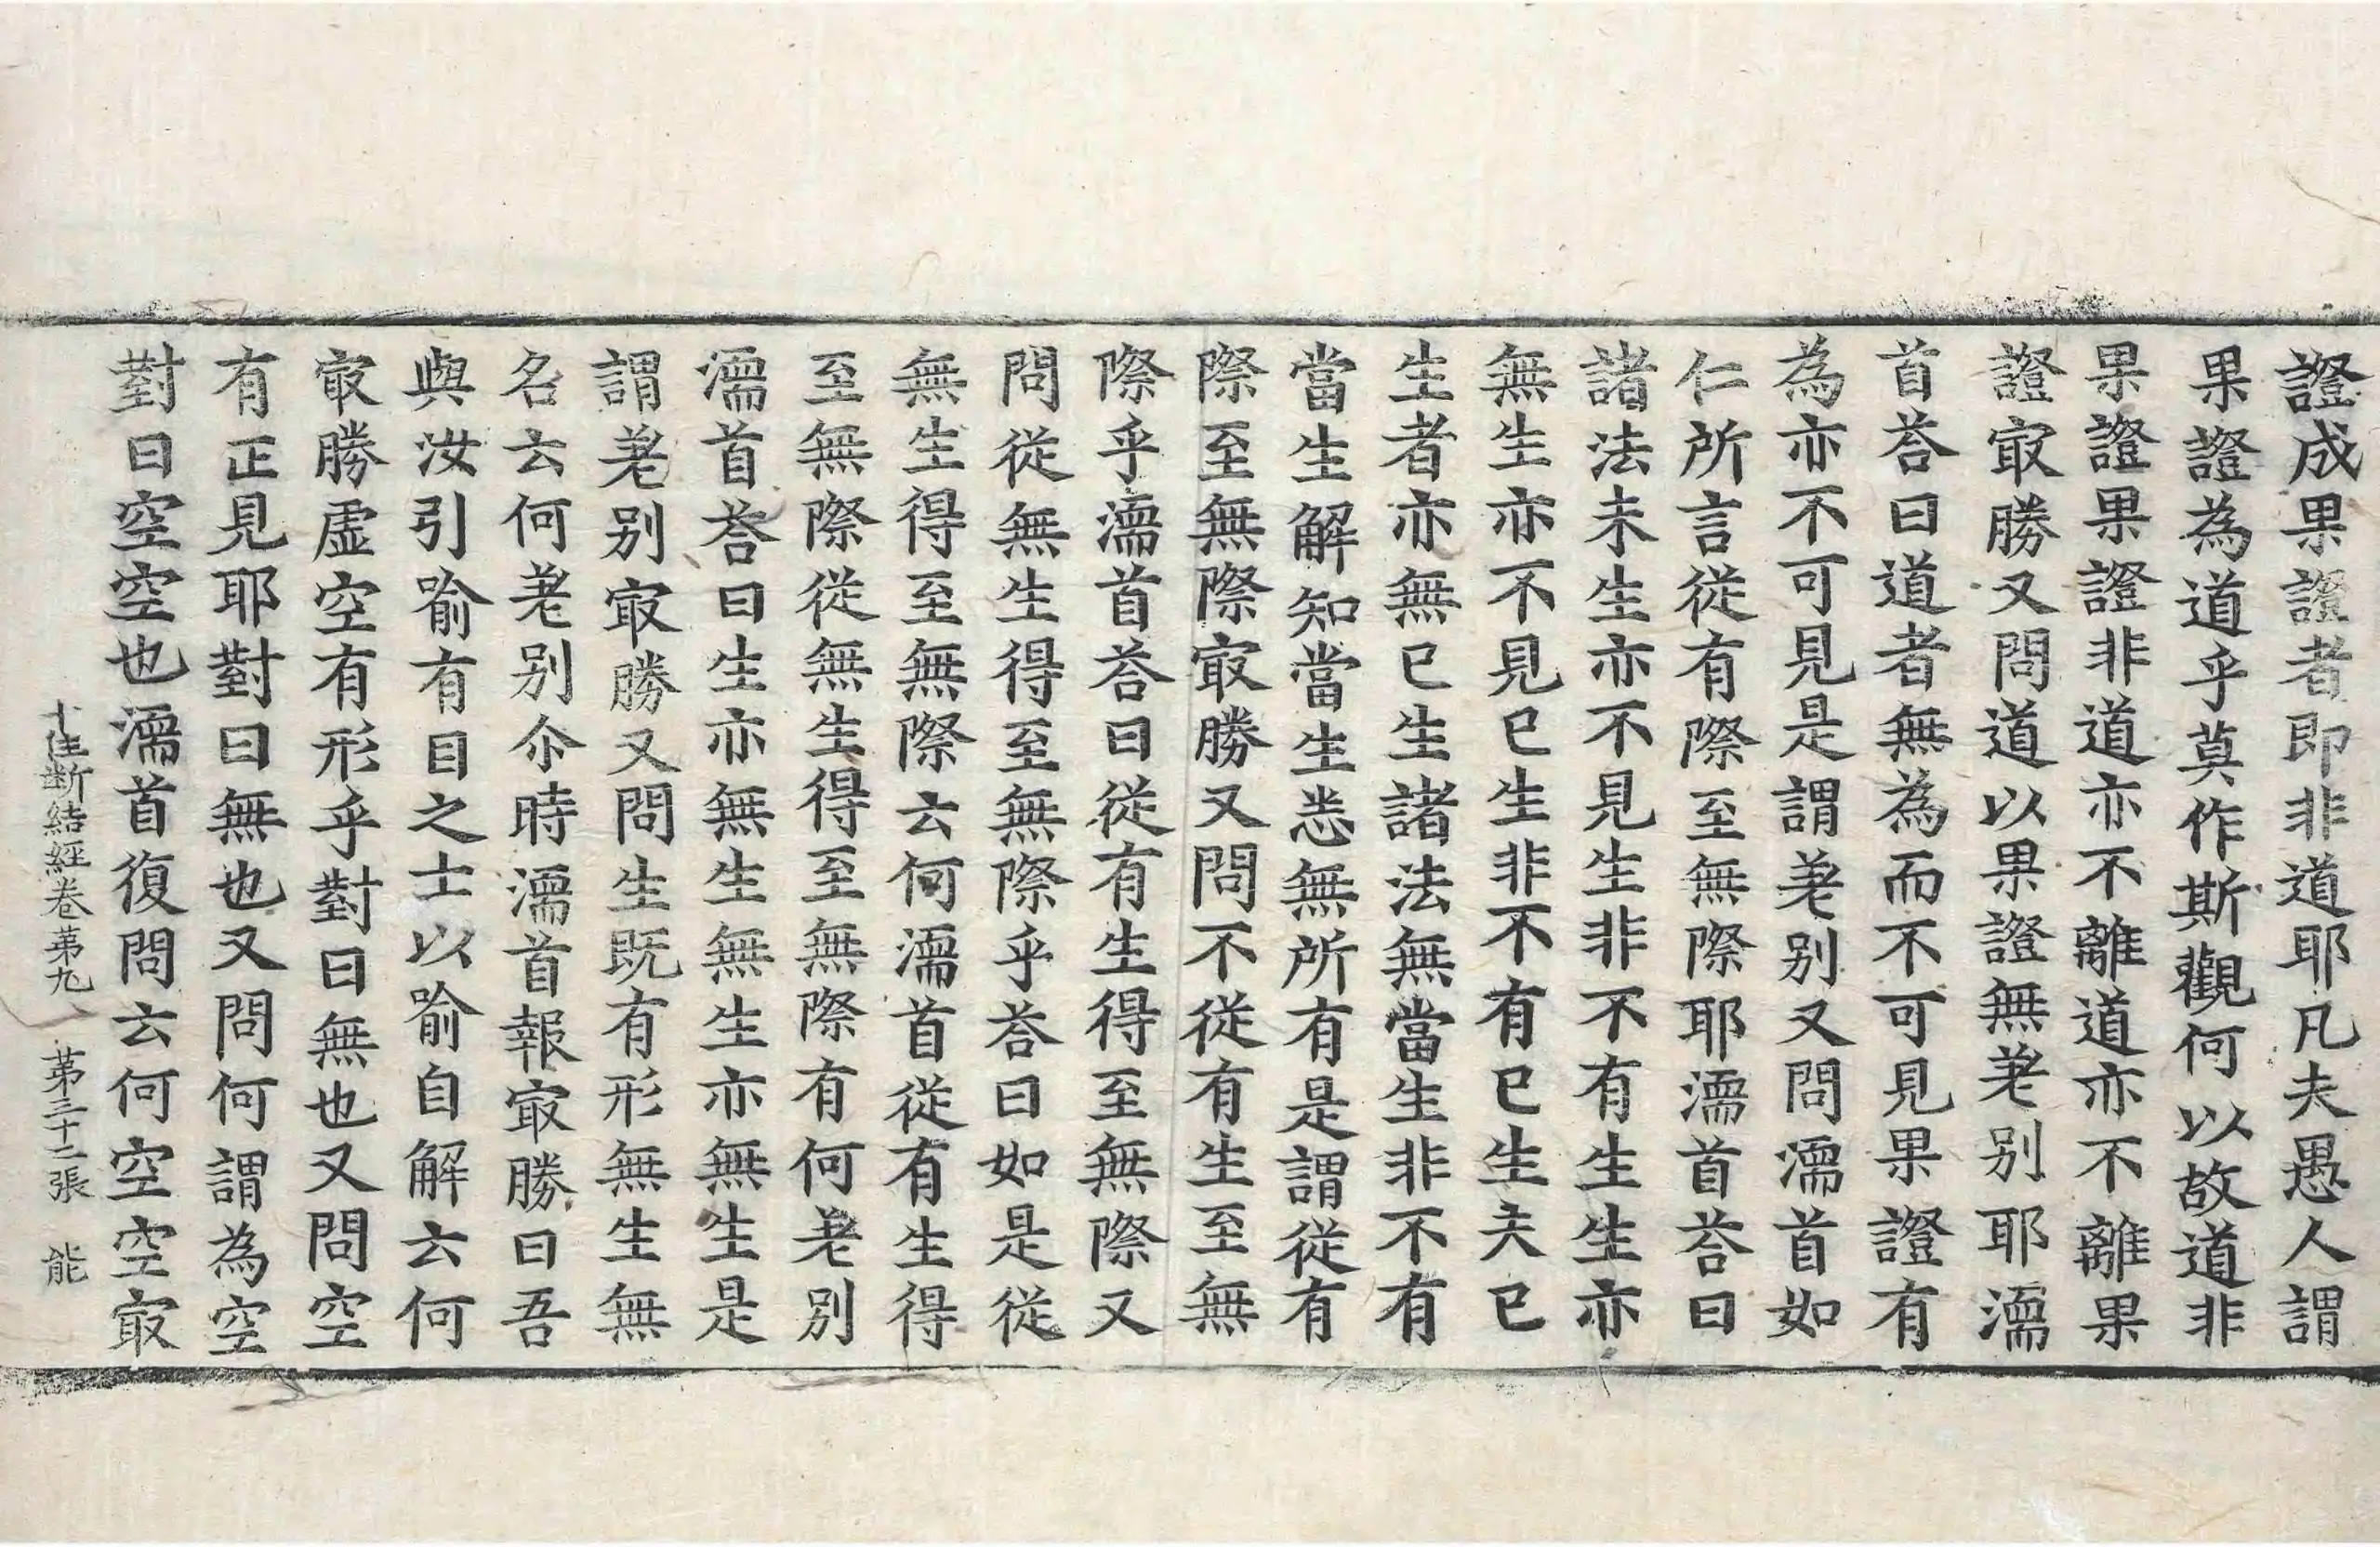 證成果證者即非道耶凡夫愚人謂
果證為道乎莫作斯觀何以故道非
果證果證非道亦不離道亦不離果
證㝡勝又問道以果證無差别耶濡
首荅曰道者無為而不可見果證有
為亦不可見是謂差别又問濡首如
仁所言從有際至無際耶濡首荅曰
諸法未生亦不見生非不有生生亦
無生亦不見已生非不有已生夫已
生者亦無已生諸法無當生非不有
當生解知當生悉無所有是謂從有
際至無際㝡勝又問不從有生至無
際乎濡首荅曰從有生得至無際又
問從無生得至無際乎荅曰如是從
無生得至無際云何濡首從有生得
至無際從無生得至無際有何差別
濡首荅曰生亦無生無生亦無生是
謂差别㝡勝又問生既有形無生無
名云何差别尒時濡首報㝡勝曰吾
與汝引喻有目之士以喻自解云何
㝡勝虛空有形乎對曰無也又問空
有正見耶對曰無也又問何謂為空
對曰空空也濡首復問云何空空㝡
十住断結經卷苐九　苐三十二張　能